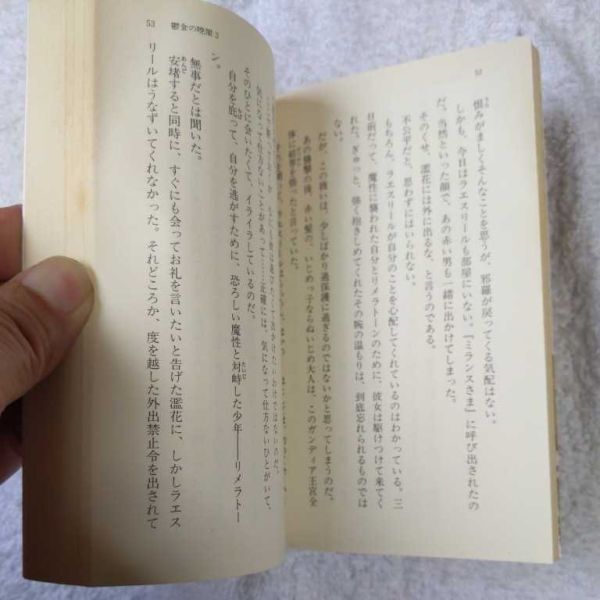 52
恨みがましくそんなことを思うが、邪羅が戻ってくる気配はない。
しかも、今日はラエスリールも部屋にいない。『ミランスさま』に呼び出されたの
だ。当然といった顔で、あの赤い男も一緒に出かけてしまった。
そのくせ、濫花には外に出るな、と言うのである。
不公平だと、思わずにはいられない。
もちろん、ラエスリールが自分のことを心配してくれているのはわかっている。三
日前だって、魔性に襲われた自分とリメラトーンのために、彼女は駆けつけて来てく
れた。ぎゅっと、強く抱きしめてくれたその腕の温もりは、到底忘れられるもので
ない。
だが、この扱いは、少しばかり過保護に過ぎるのではないかと思ってしまうのだ。
あの襲撃の後、赤い髪の、いじめっ子ならぬいじめ大人は、このガンディア王宮全
体に結界を張ったと言っていた。
53 鬱金の暁闇 3
気になって仕方ないことがあって……正確には、気になって仕方ないひとがいて、
そのひとに会いたくて、イライラしているのだ。
自分を庇って、自分を逃がすために、恐ろしい魔性と対峙した少年――リメラトー
ン。
無事だとは聞いた。
安堵すると同時に、すぐにも会ってお礼を言いたいと告げた濫花に、しかしラエス
リールはうなずいてくれなかった。それどころか、度を越した外出禁止令を出されて